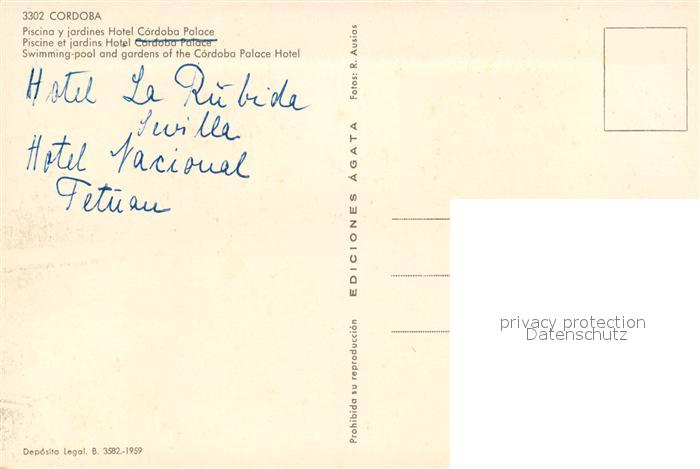 3302 CORDOBA
Piscina y jardines Hotel Córdoba Palace
Piscine et jardins Hotel Córdoba Palace
Swimming-pool and gardens of the Córdoba Palace Hotel
Hotel La Rŭbida
Sevilla
Hotel Nacional
Tetŭan
Depósito Legal. B. 3582.-1959
Prohibida su reproducción
EDICIONES ÁGATA
Fotos: R. Ausias
privacy protection
Datenschutz